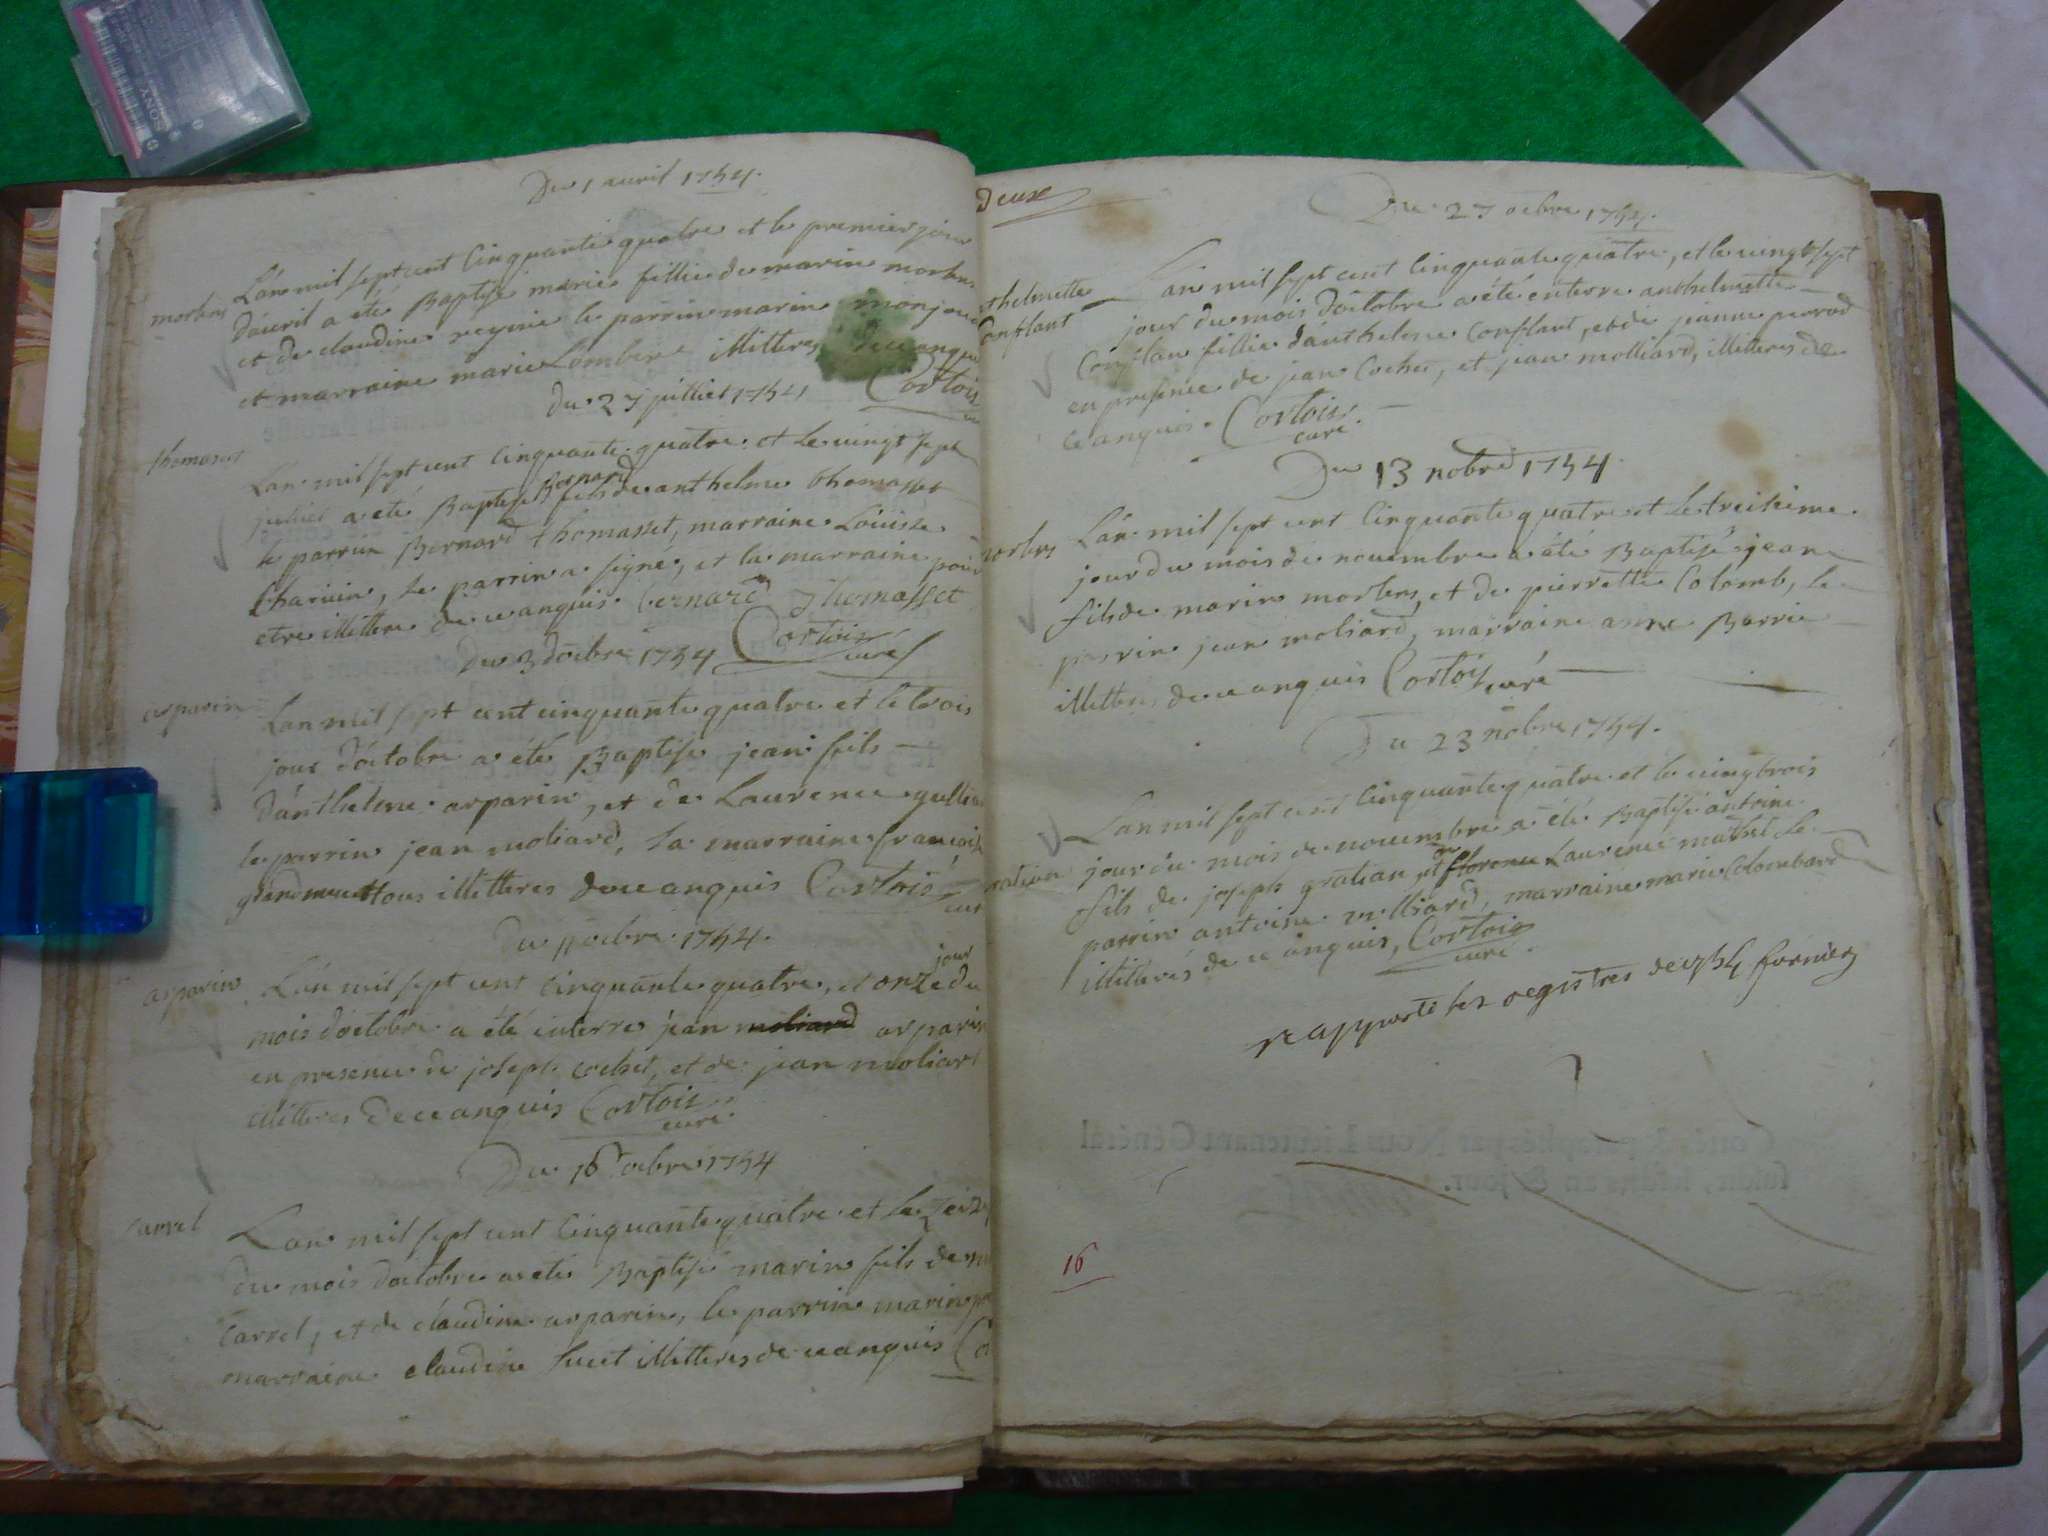 SONY
Du 1 auril 1754.
mortens
L'an mil sept cent Cinquante quatre et le premier jour
d'auril a été Baptise marie fillie de marin
et de claudine reynie le parrin marin monjou
et marraine marie illitteres de ce anquis
Cortois
du 27 julliet 1754
thomasset
L'an mil sept cent cinquante quatre et le vingt sept
julliet a été Baptise Bernard fils de anthelme thomasset
le parrin Bernard thomasset, marraine Louisse
, le parrin a signé, et la marraine pour
etre illittere de ce anquis bernard Thomasset
Cortois curé
Du 3 d'octbre 1754
arparin
L'an mil sept cent cinquante quatre et le trois
jour d'octobre a été Baptise jean fils
d'anthelme arparin, et de Laurence
le parrin jean moliard, la marraine francoise
tous illitteres de ce anquis Cortois
cur
Du 11 octbre 1754.
arparin
L'an mil sept cent Cinquante quatre, et onze jour du
mois d'octobre a été enterre jean moliard arparin
en presence de joseph cochet, et de jean moliard
illitteres de ce anquis Cortois
curé
Du 16 octbre 1754
Carrel
L'an mil sept cent Cinquante quatre et le
du mois d'octobre a été Baptisé marin fils de
Carrel, et de claudine arparin, le parrin marin
marraine claudine illitteres de ce anquis
deux
Du 27 octbre 1754.
thelmette
Conflant
L'an mil sept cent cinquante quatre, et le vingt sept
jour du mois d'octobre a été enterre anthelmette
Conflan fillie d'anthelme Conflant, et de jeanne perrod
en presence de jean Cochet, et jean molliard, illitteres de
ce anquis. Cortois
curé.
Du 13 nobre 1754.
L'an mil sept cent Cinquante quatre et le treisieme
jour du mois de nouembre a été Baptisé jean
fils de marin mortens, et de pierrette Colomb, le
parrin jean moliard, marraine anne
illitteres de ce anquis Cortois curé
Du 23 nobre 1754.
L'an mil sept cent Cinquante quatre et le vingtrois
jour du mois de nouembre a été Baptisé antoine
fils de joseph gratian et de florence Laurence mathet le
parrin antoine molliard, marraine marie Colombard
illitterés de ce anquis, Cortois
curé.
rapporté les registres de 1754 fornier
16